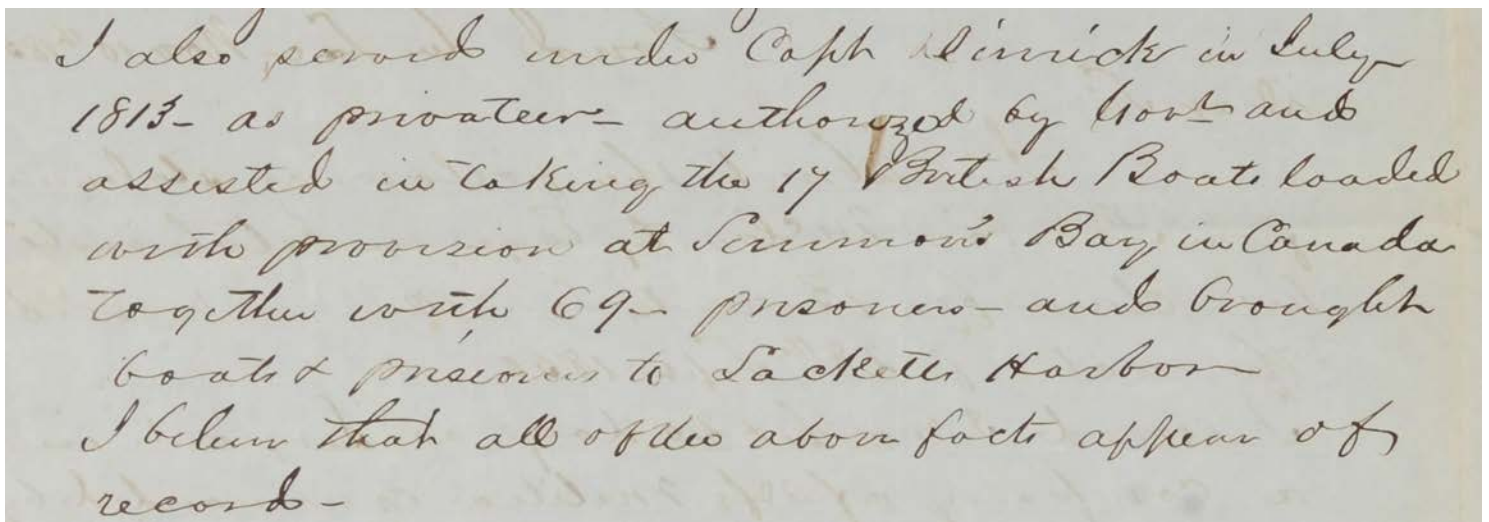 I also served under Capt Dimick in July
1813 - as privateer - authorized by Govt and
assisted in taking the 17 British Boats loaded
with provision at Simmon's Bay in Canada
together with 69 - prisoners - and brought
boats & prisoners to Sacketts Harbor
I believe that all of the above facts appear of
record -